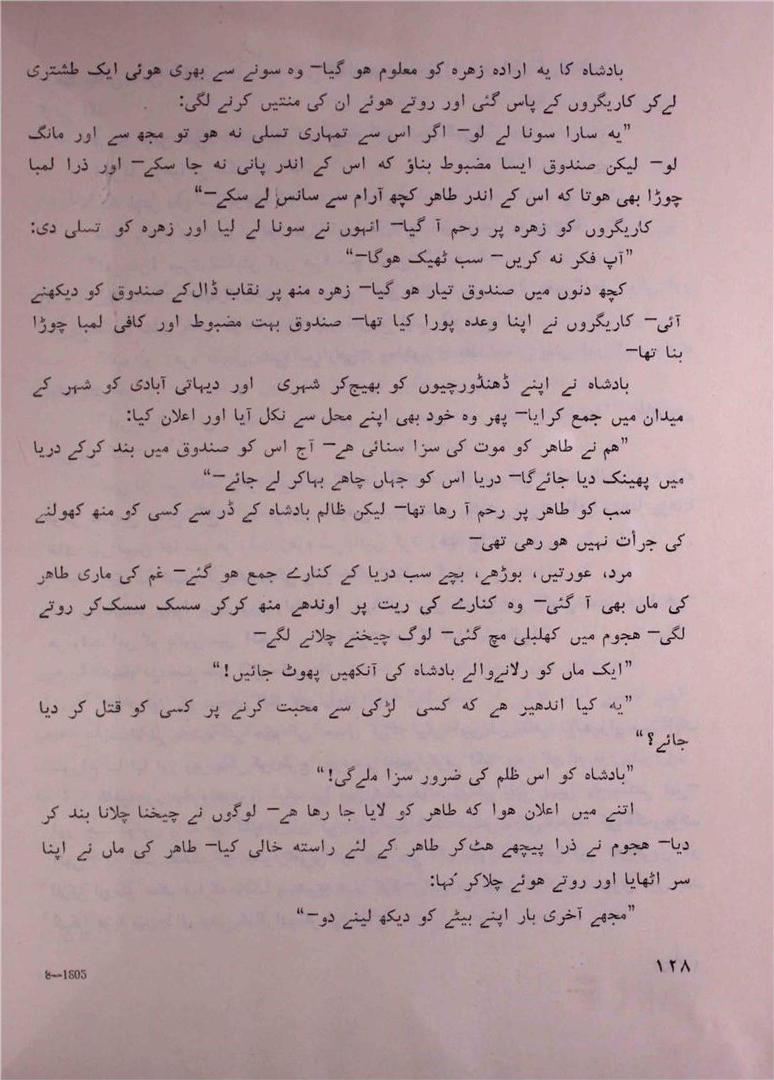 بادشاہ کا یہ ارادہ زھرہ کو معلوم ھو گیا— وہ سونے سے بھری ھوئی ایک طشتری
لےکر کاریگروں کے پاس گئی اور روتے ھوئے ان کی منتیں کرنے لگی:
”یہ سارا سونا لے لو— اگر اس سے تمہاری تسلی نہ ھو تو مجھ سے اور مانگ
لو— لیکن صندوق ایسا مضبوط بناؤ کہ اس کے اندر پانی نہ جا سکے— اور ذرا لمبا
چوڑا بھی ھوتا کہ اس کے اندر طاھر کچھ آرام سے سانس لے سکے—“
کاریگروں کو زھرہ پر رحم آ گیا— انہوں نے سونا لے لیا اور زھرہ کو تسلی دی:
”آپ فکر نہ کریں— سب ٹھیک ھوگا—“
کچھ دنوں میں صندوق تیار ھو گیا— زھرہ منھ پر نقاب ڈال‌کے صندوق کو دیکھنے
آئی— کاریگروں نے اپنا وعدہ پورا کیا تھا— صندوق بہت مضبوط اور کافی لمبا چوڑا
بنا تھا—
بادشاہ نے اپنے ڈھنڈورچیوں کو بھیج‌کر شہری اور دیہاتی آبادی کو شہر کے
میدان میں جمع کرایا— پھر وہ خود بھی اپنے محل سے نکل آیا اور اعلان کیا:
”ھم نے طاھر کو موت کی سزا سنائی ھے— آج اس کو صندوق میں بند کرکے دریا
میں پھینک دیا جائےگا— دریا اس کو جہاں چاھے بہاکر لے جائے—“
سب کو طاھر پر رحم آ رھا تھا— لیکن ظالم بادشاہ کے ڈر سے کسی کو منھ کھولنے
کی جرأت نہیں ھو رھی تھی—
مرد، عورتیں، بوڑھے، بچے سب دریا کے کنارے جمع ھو گئے— غم کی ماری طاھر
کی ماں بھی آ گئی— وہ کنارے کی ریت پر اوندھے منھ گرکر سسک سسک‌کر رونے
لگی— ھجوم میں کھلبلی مچ گئی— لوگ چیخنے چلانے لگے—
”ایک ماں کو رلانےوالے بادشاہ کی آنکھیں پھوٹ جائیں!“
”یہ کیا اندھیر ھے کہ کسی لڑکی سے محبت کرنے پر کسی کو قتل کر دیا
جائے؟“
”بادشاہ کو اس ظلم کی ضرور سزا ملےگی!“
اتنے میں اعلان ھوا کہ طاھر کو لایا جا رھا ھے— لوگوں نے چیخنا چلانا بند کر
دیا— ھجوم نے ذرا پیچھے ھٹ‌کر طاھر کے لئے راستہ خالی کیا— طاھر کی ماں نے اپنا
سر اٹھایا اور روتے ھوئے چلاکر کہا:
”مجھے آخری بار اپنے بیٹے کو دیکھ لینے دو—“
۱۲۸
8—1805